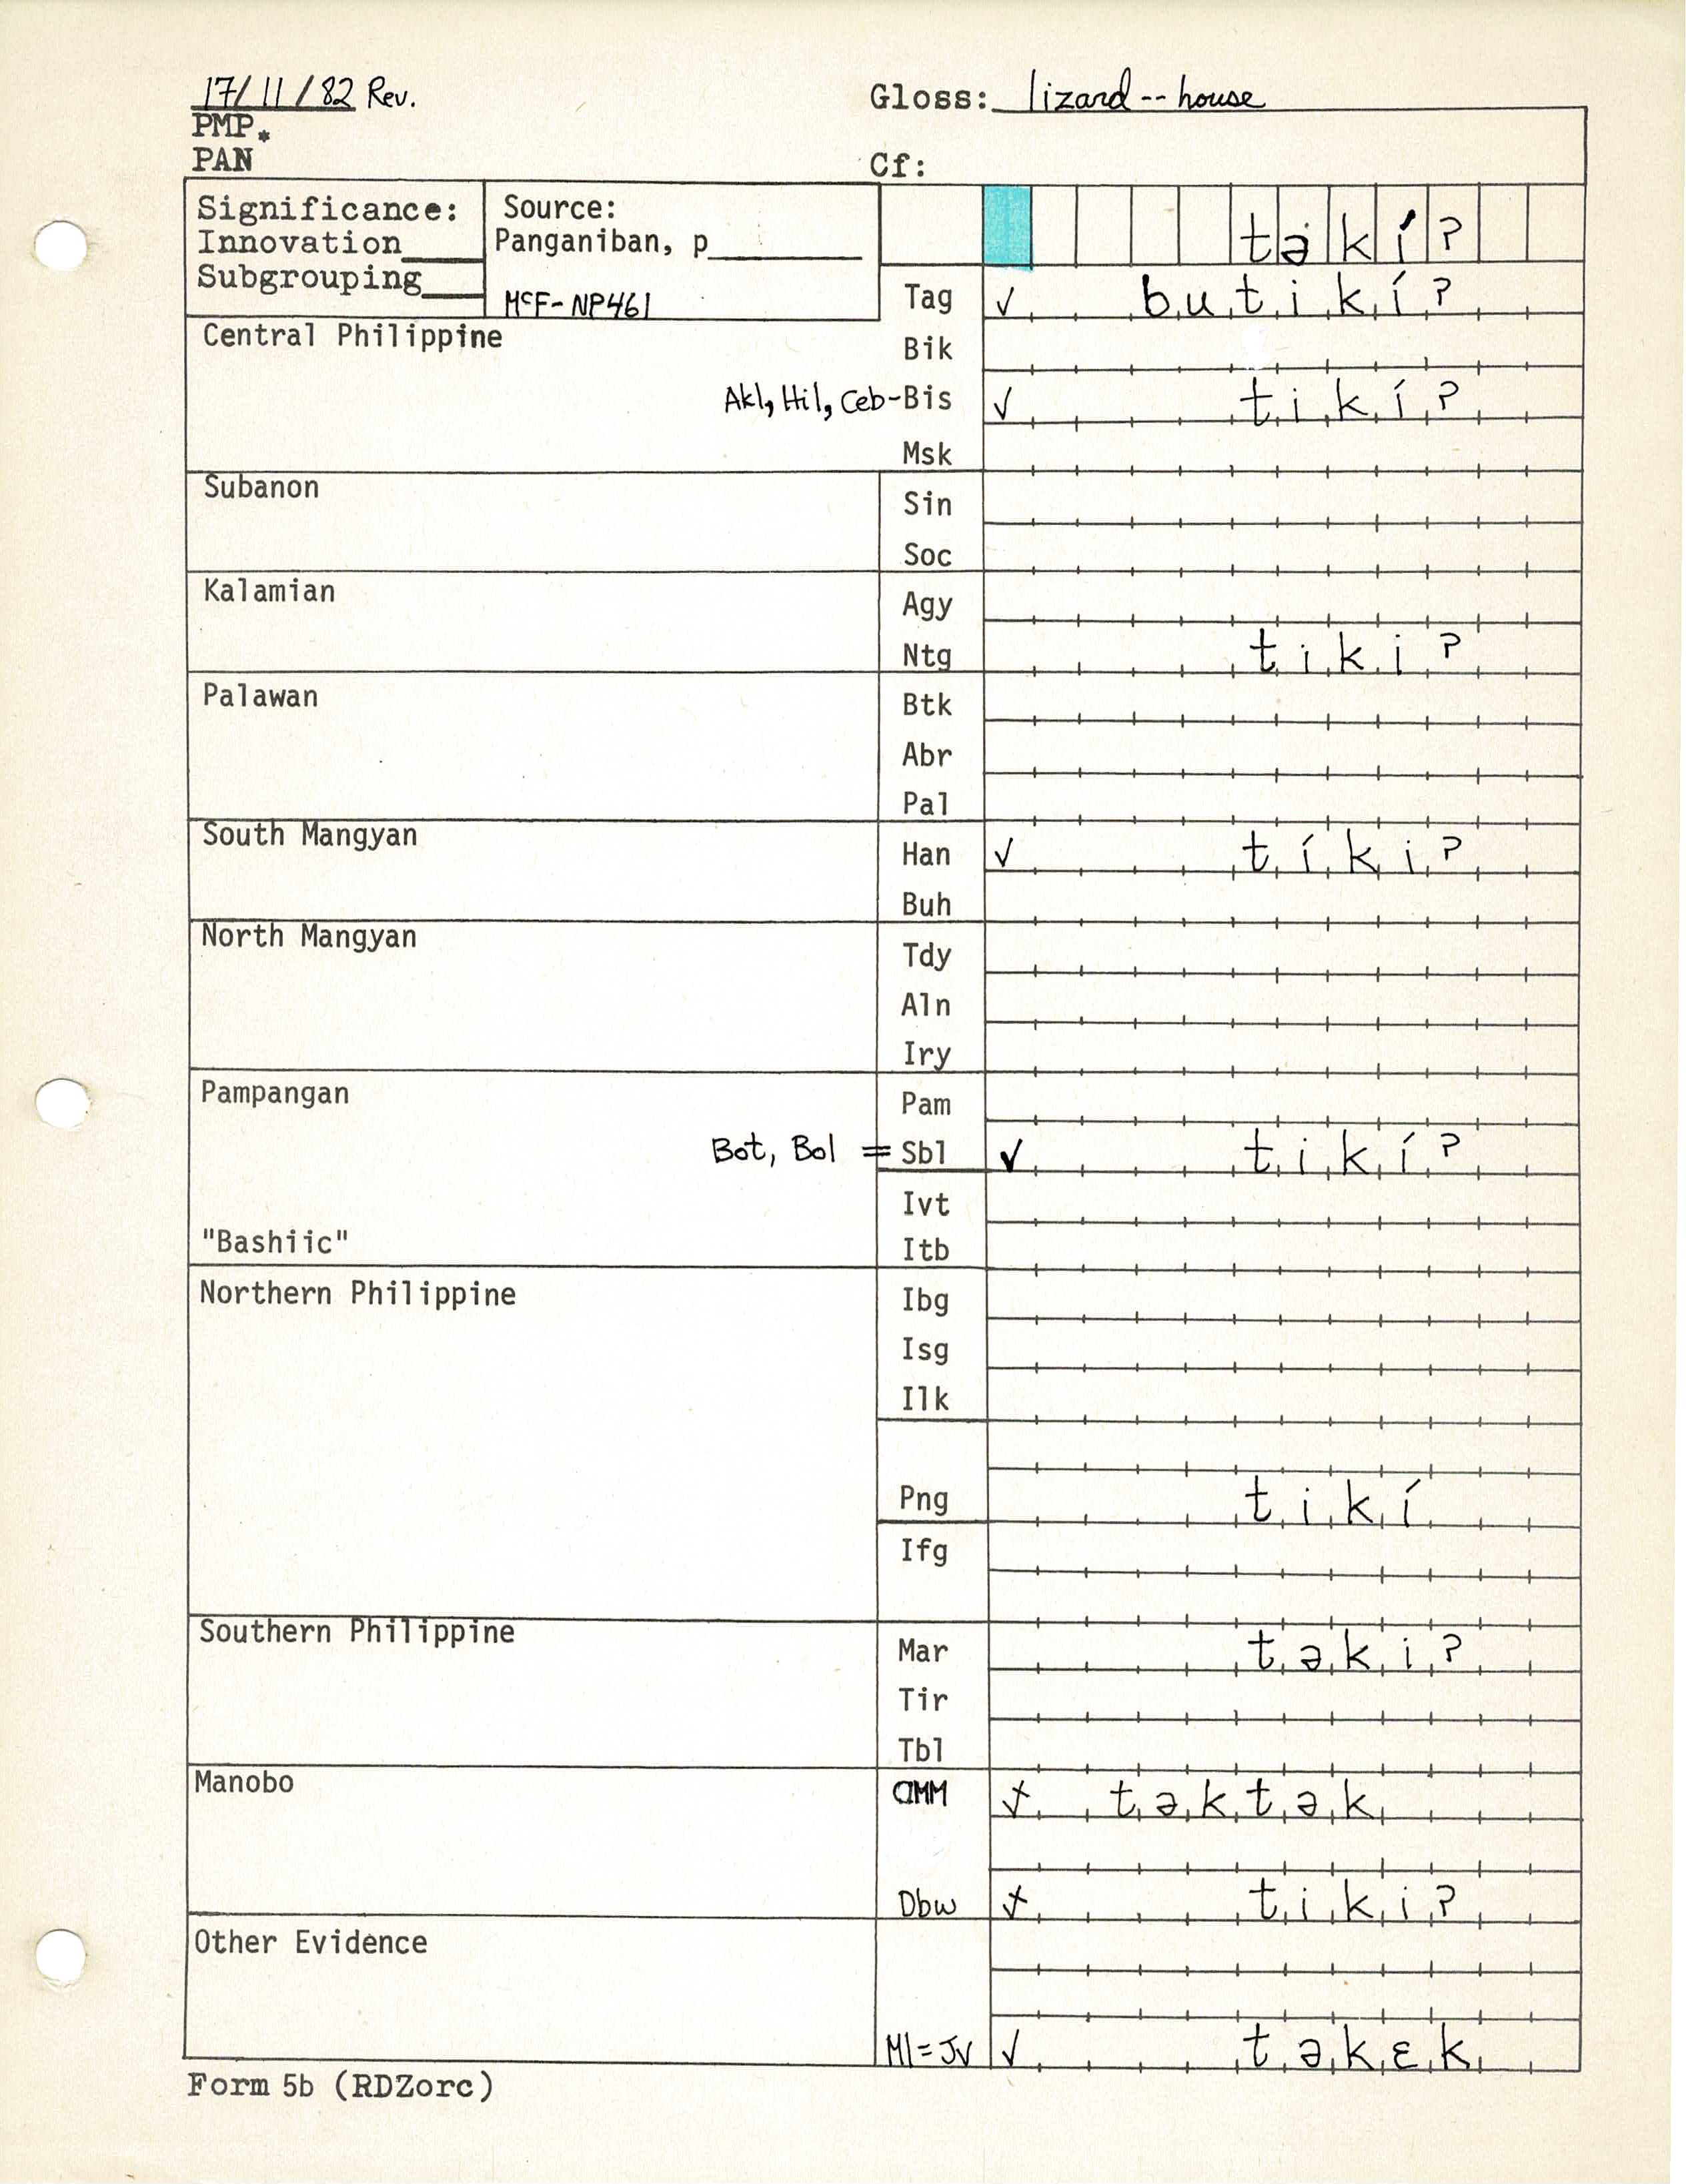 17/11/82 Rev. Gloss: lizard -- house
PMP*
PAN Cf:
Significance: Source:
Innovation____ Panganiban, p________
Subgrouping____
McF-NP461
təkí?
Tag ✓ butikí?
Central Philippine
Bik
Akl, Hil, Ceb-Bis ✓ tikí?
Msk
Subanon
Sin
Soc
Kalamian
Agy
Ntg tiki?
Palawan
Btk
Abr
Pal
South Mangyan
Han ✓ tíki?
Buh
North Mangyan
Tdy
Aln
Iry
Pampangan
Pam
Bot, Bol = Sbl ✓ tikí?
Ivt
"Bashiic"
Itb
Northern Philippine
Ibg
Isg
Ilk
Png tikí
Ifg
Southern Philippine
Mar təki?
Tir
Tbl
Manobo
təktək
Dbw tiki?
Other Evidence
Ml=Jv ✓ təkɛk
Form 5b (RDZorc)